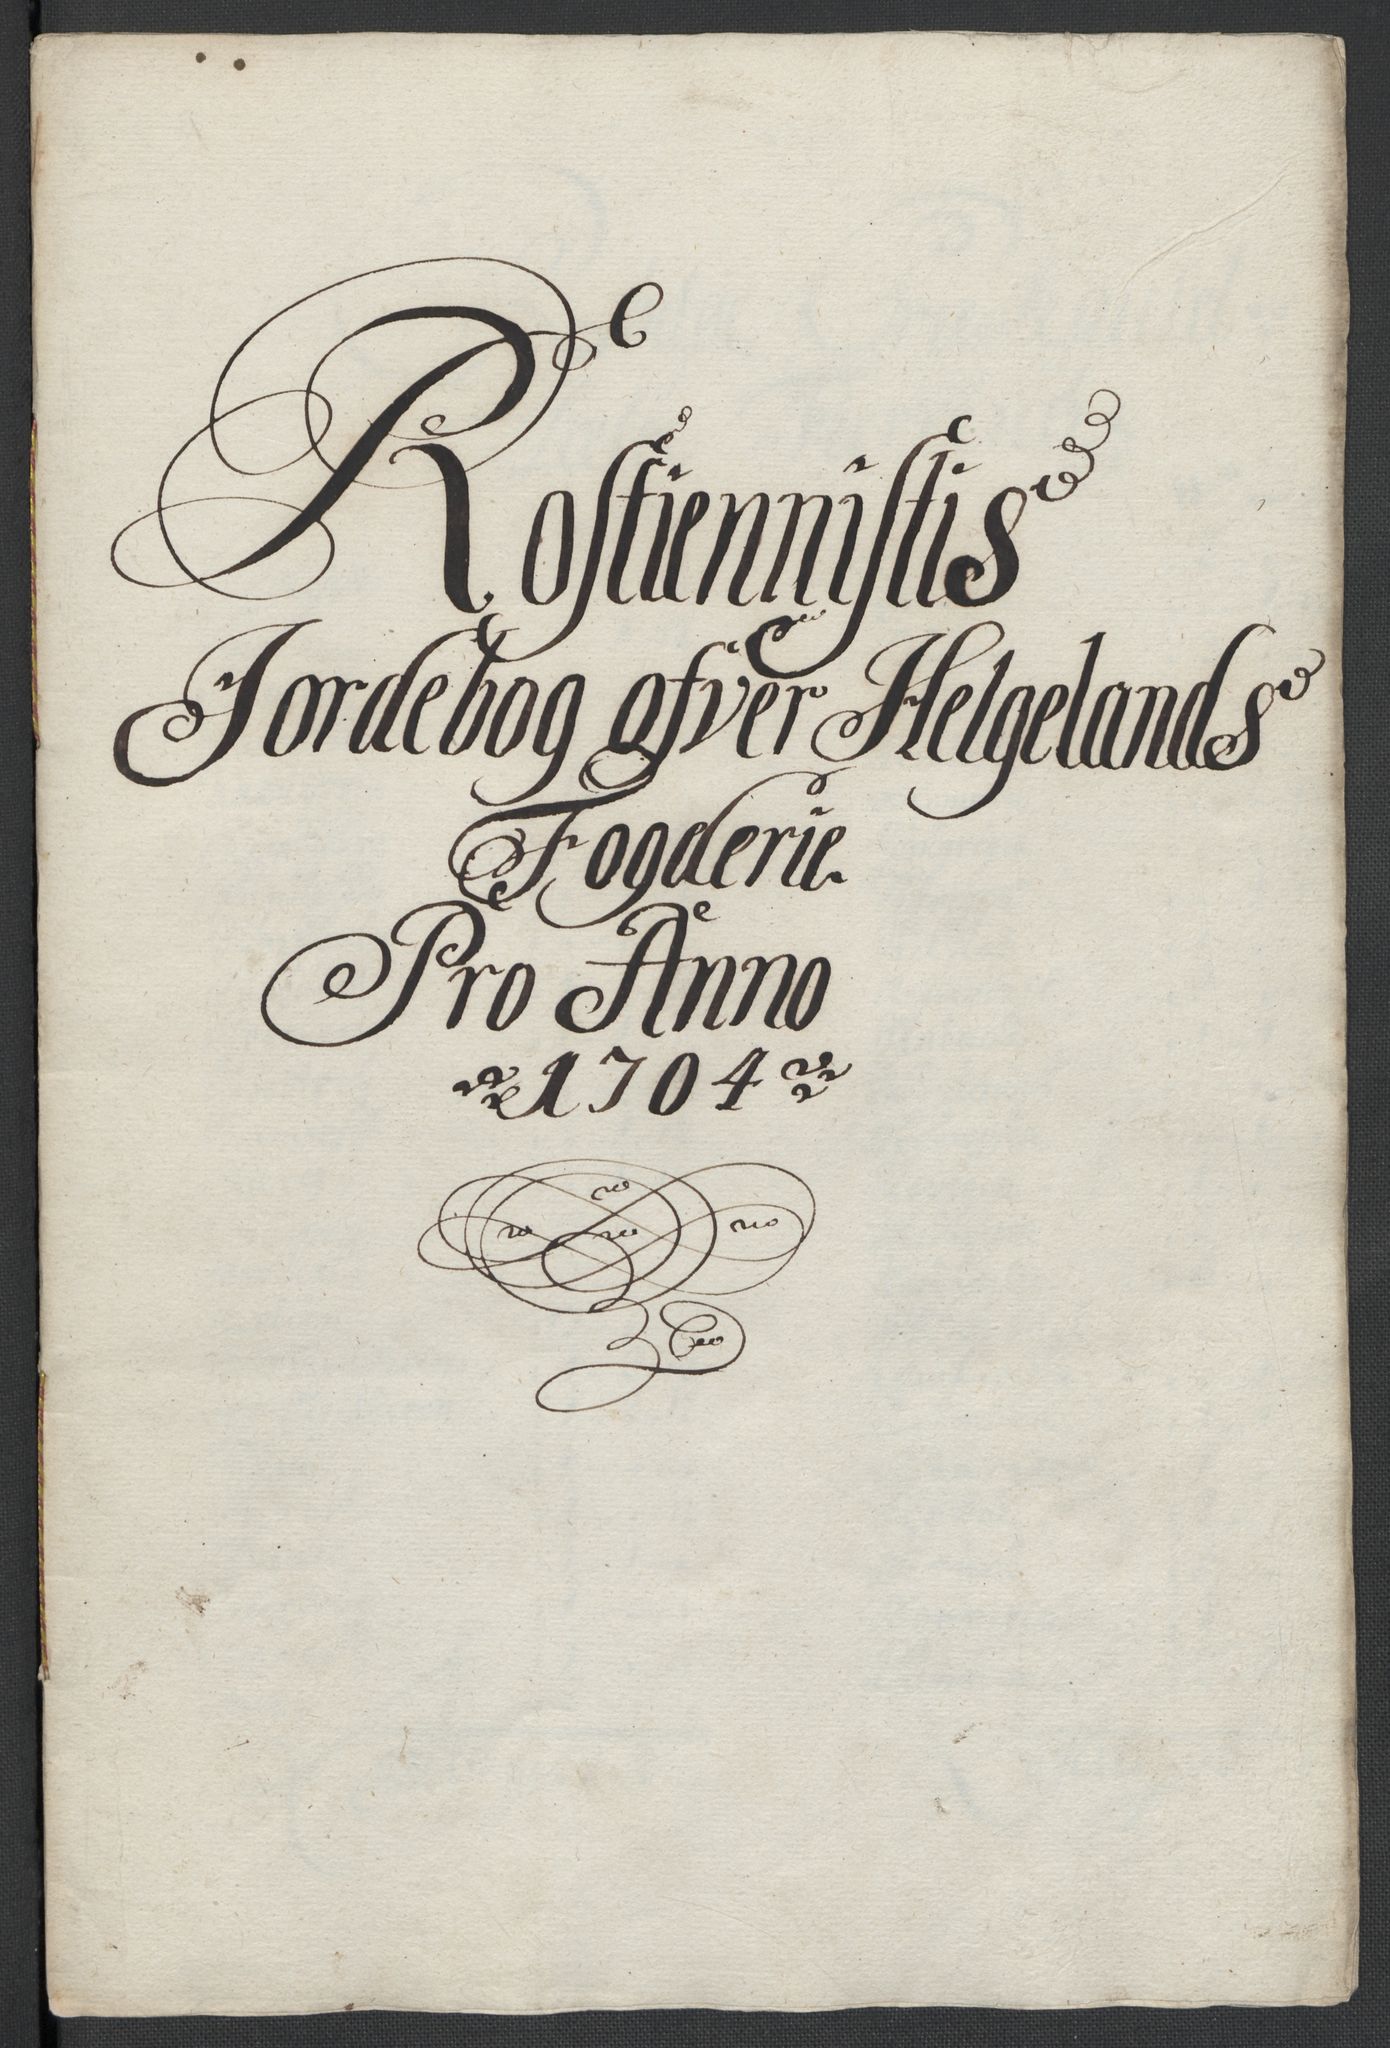 Rostiennistis
Jordebog ofver Helgelands
Fogderie.
Pro Anno
1704